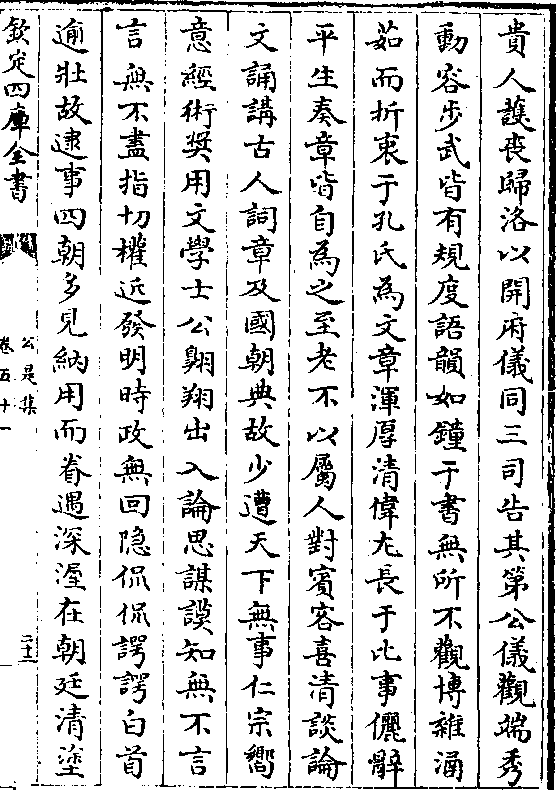 貴人護喪歸洛以開府儀同三司告其第公儀觀端秀
動容步武皆有規度語韻如鐘于書無所不觀博雜涵
茹而折衷于孔氏為文章渾厚清偉尤長于比事儷辭
平生奏章皆自為之至老不以屬人對賓客喜清談論
文誦講古人詞章及國朝典故少遭天下無事仁宗嚮
意經術奬用文學士公翺翔出入論思謀謨知無不言
言無不盡指切權近發明時政無回隐侃侃諤諤白首
逾壯故逮事四朝多見納用而眷遇深渥在朝廷清塗
欽定四庫全書
公是集
卷五十一
二十三